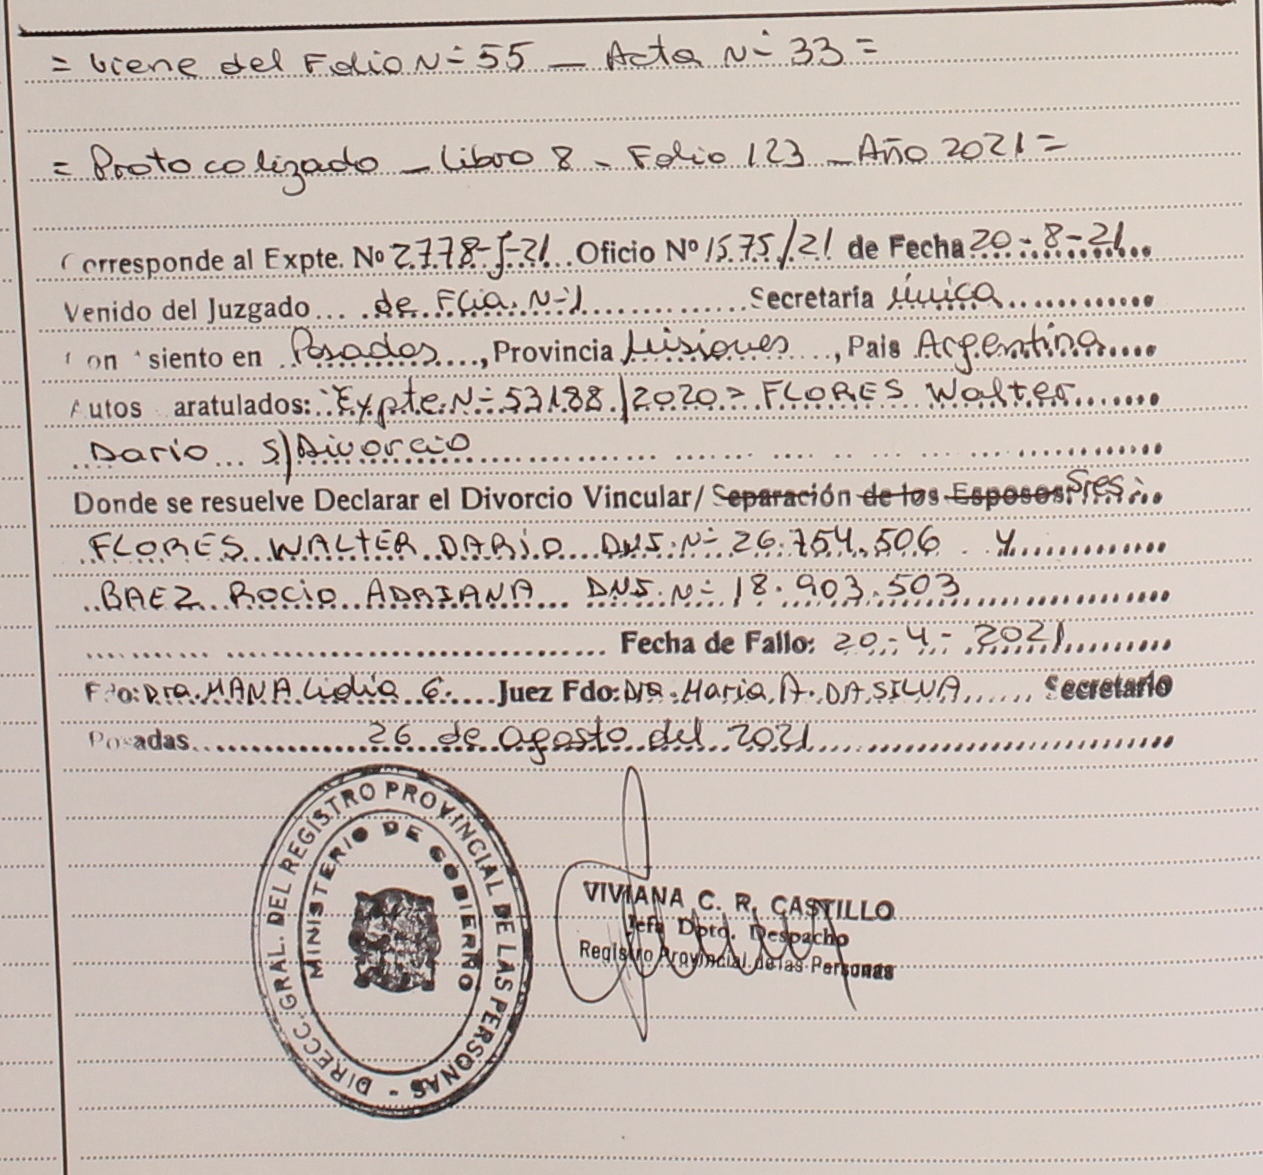 = Viene del Folio Nº 55 — Acta Nº 33 =
= Protocolizado — Libro 8 - Folio 123 — Año 2021 =
Corresponde al Expte. Nº 2778-J-21 Oficio Nº 1575/21 de Fecha 20-8-21
Venido del Juzgado de Flia. Nº 1 Secretaría Única
Con Asiento en Posadas, Provincia Misiones, Pais Argentina
Autos Caratulados: Expte. Nº 53188/2020 FLORES Walter
Dario S/Divorcio
Donde se resuelve Declarar el Divorcio Vincular/ Separación de los Esposos Sres:
FLORES WALTER DARIO DNI. Nº 26.754.506 Y
BAEZ Rocio ADRIANA DNI. Nº 18.903.503
Fecha de Fallo: 20-4-2021
Fdo: Dra. MANA Lidia E. Juez Fdo: Dra. Maria A. DA SILVA Secretario
Posadas 26 de agosto del 2021
DIRECC. GRAL. DEL REGISTRO PROVINCIAL DE LAS PERSONAS -
MINISTERIO DE GOBIERNO
VIVIANA C. R. CASTILLO
Jefa Dpto. Despacho
Registro Provincial de las Personas